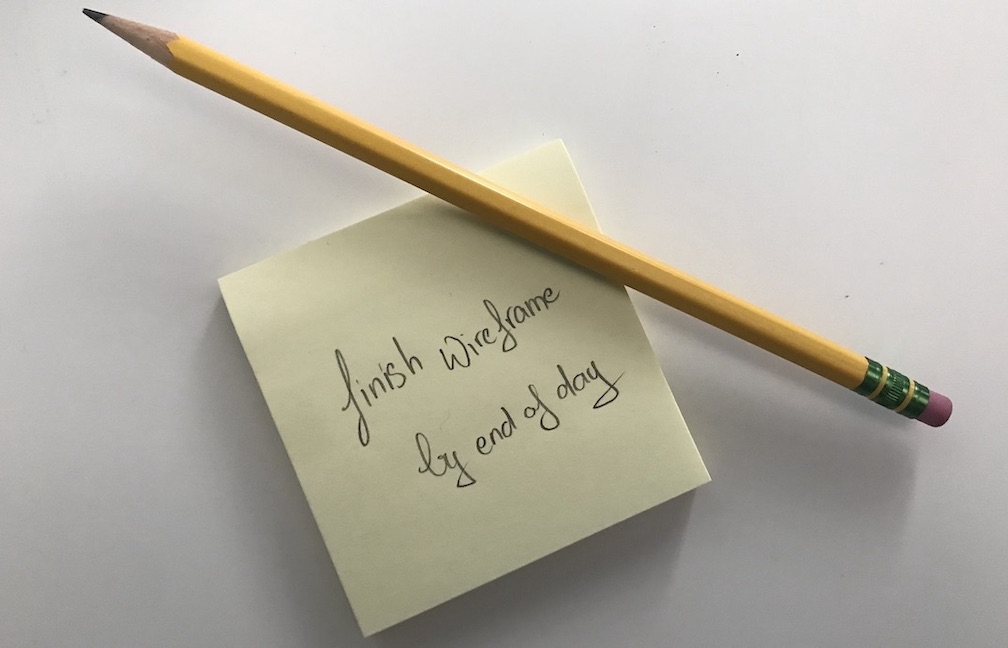 finish wireframe
by end of day